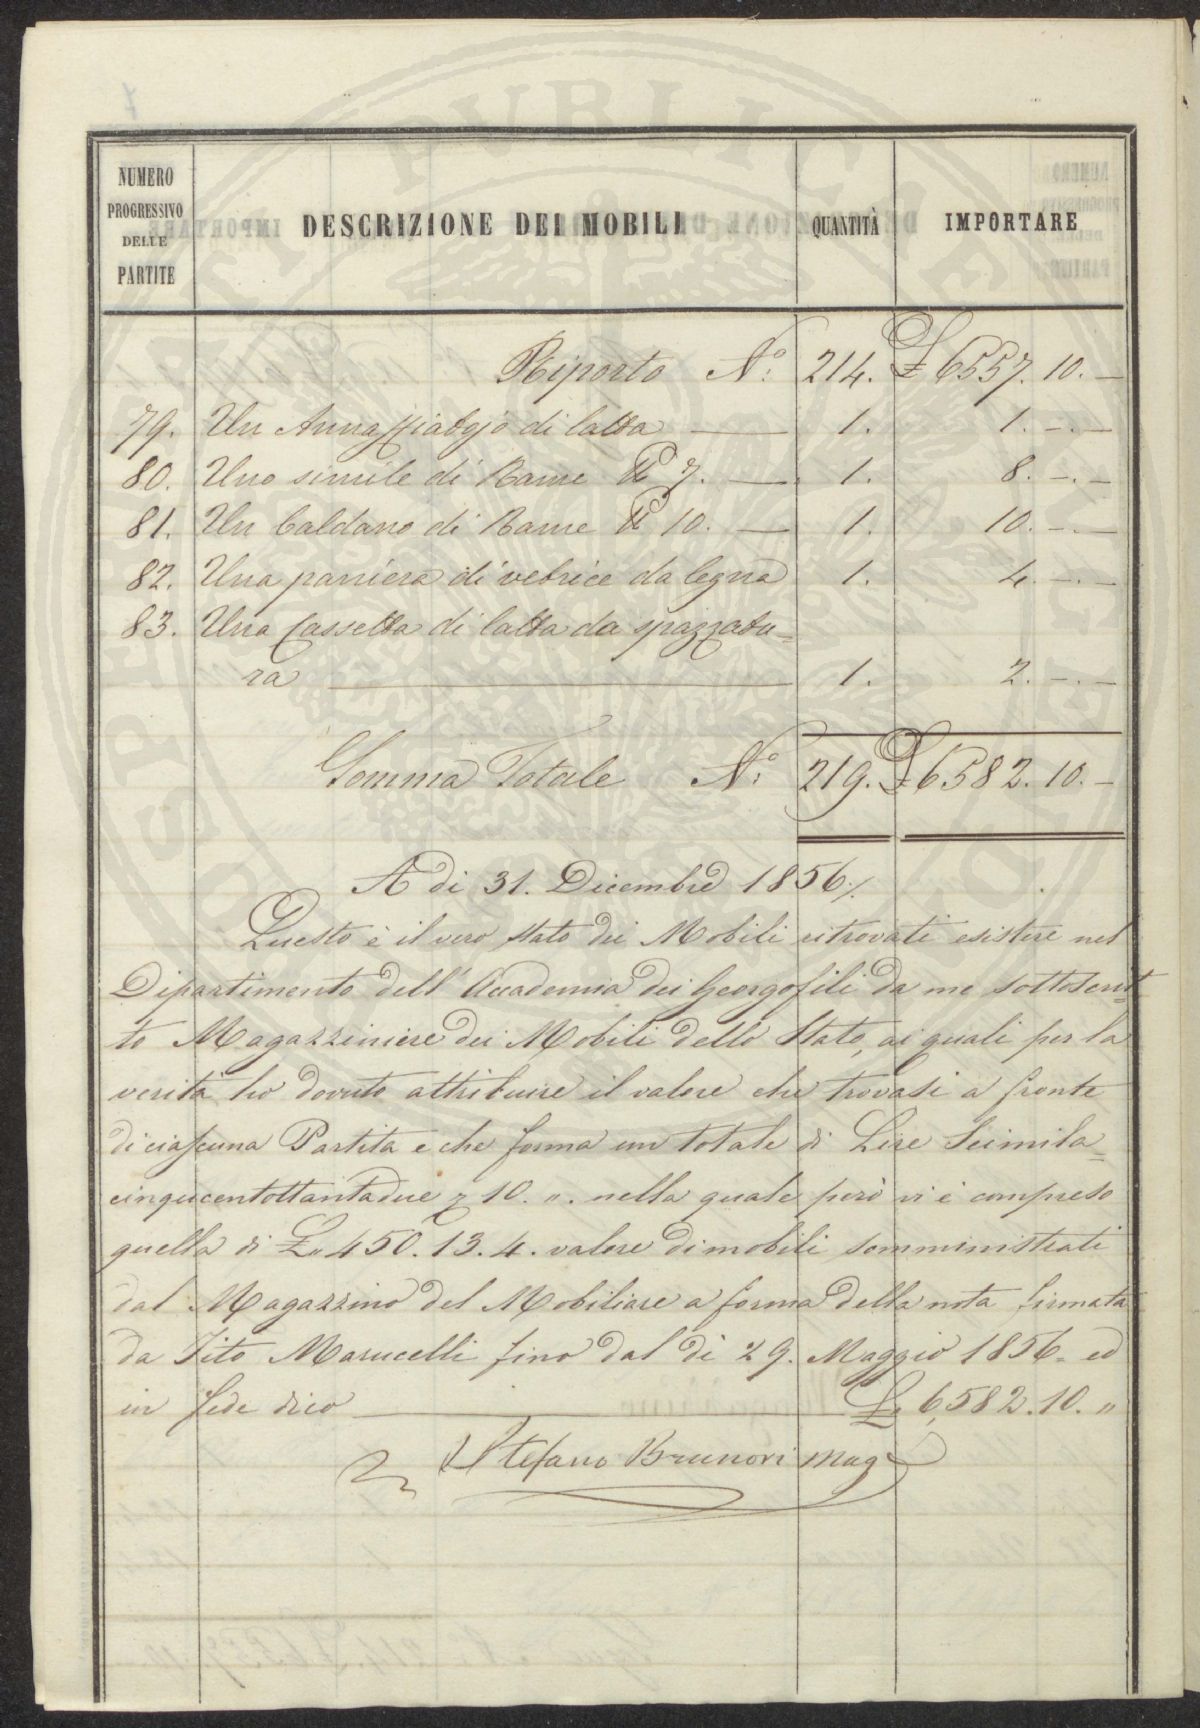 NUMERO PROGRESSIVO DELLE PARTITE
DESCRIZIONE DEI MOBILI
QUANTITÀ
IMPORTARE
Riporto N.° 214. £ 6557. 10. –
79. Un Annaffiatojo di latta 1. 1. –. –
80. Uno simile di Rame ℔ 7. 1. 8. –. –
81. Un Caldano di Rame ℔ 10. 1. 10. –. –
82. Una paniera di vetrice da legna 1. 4. –. –
83. Una Cassetta di latta da spazzatu=
ra 1. 2. –. –
Somma Totale N.° 219. £ 6582. 10. –
A di 31. Dicembre 1856./.
Questo è il vero stato dei Mobili ritrovati esistere nel
Dipartimento dell' Accademia dei Georgofili da me sottoscrit=
to Magazziniere dei Mobili dello Stato, ai quali per la
verità ho dovuto attribuire il valore che trovasi a fronte
di ciascuna Partita e che forma un totale di Lire Seimila=
cinquecentottantadue 10. „. nella quale però vi è compreso
quella di £. 450. 13. 4. valore di mobili somministrati
dal Magazzino del Mobiliare a forma della nota firmata
da Tito Marucelli fino dal dì 29. Maggio 1856. ed
in fede dico £. 6,582. 10. „
Stefano Brunori Mag.e
PUBLICAE